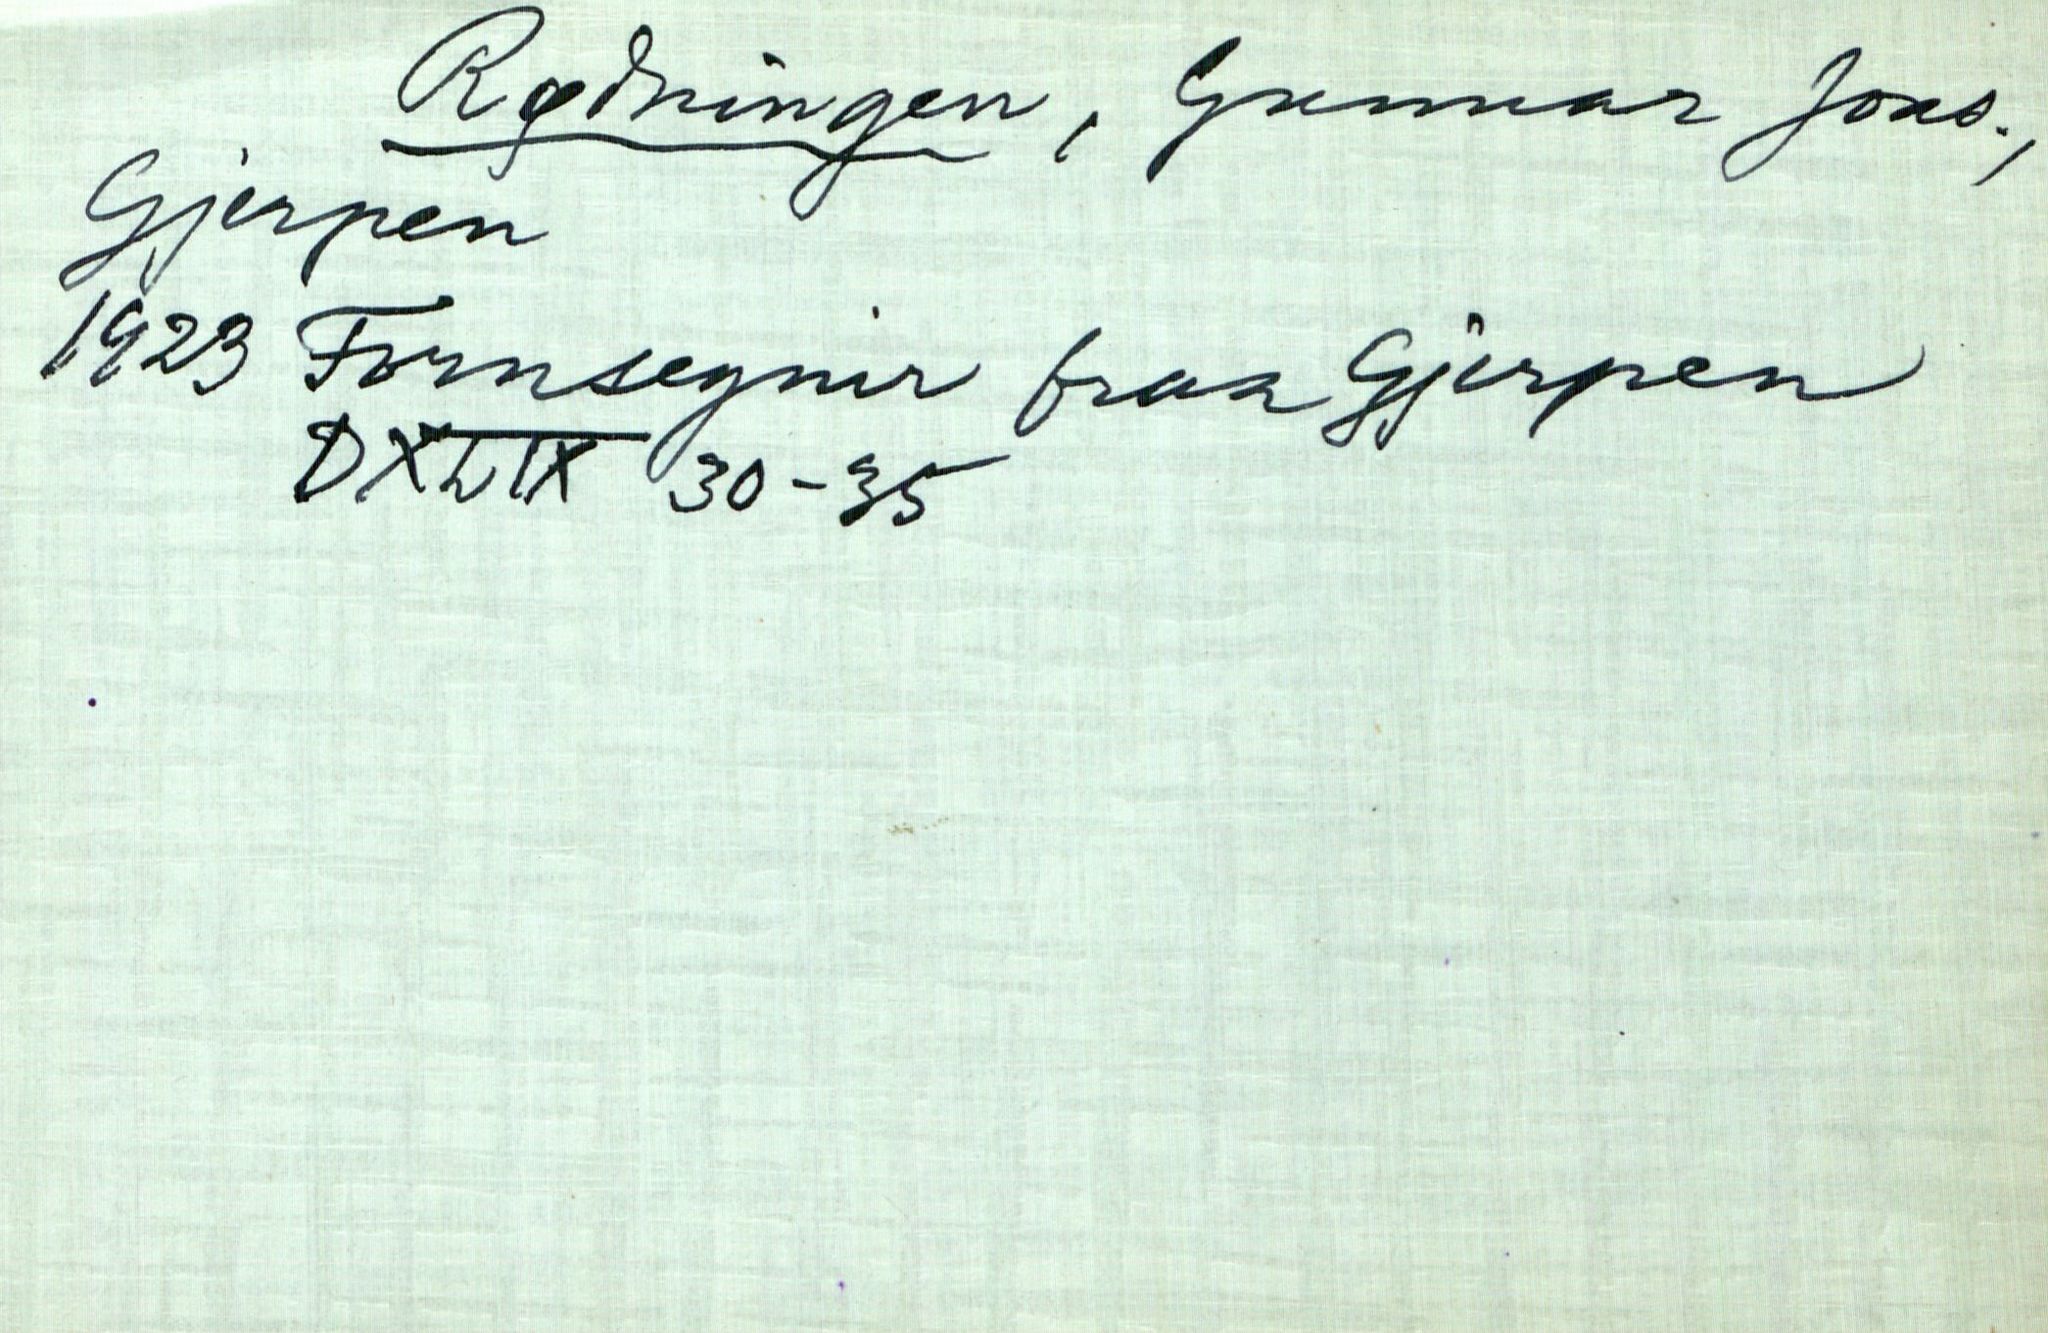 Rødningen, Gunnar Jons.,
Gjerpen
1923 Fornsegnir fraa Gjerpen
DXLIX 30-35